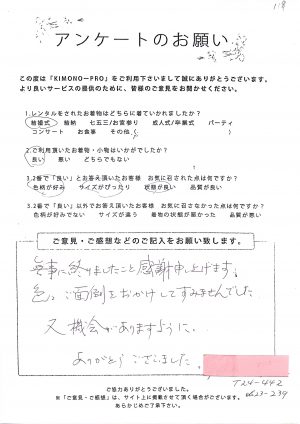 118
アンケートのお願い
この度は「KIMONO－PRO」をご利用下さいまして誠にありがとうございます。
より良いサービスの提供のために、皆様のご意見をお聞かせください。
1.レンタルをされたお着物はどちらに着ていかれましたか？
結婚式　結納　七五三/お宮参り　成人式/卒業式　パーティ
コンサート　お食事　その他（　）
2.ご利用頂いたお着物・小物はいかがでしたか？
良い　悪い　どちらでもない
3.2番で「良い」とお答え頂いたお客様　お気に召された点は何ですか？
色柄が好み　サイズがぴったり　状態が良い　品質が良い
3.2番で「良い」以外でお答え頂いたお客様　お気に召さなかった点は何ですか？
色柄が好みでない　サイズが違う　着物の状態が悪かった　品質が悪い
ご意見・ご感想などのご記入をお願い致します。
無事に終りましたこと感謝申し上げます。
色々ご面倒をおかけしてすみませんでした
又機会がありますように…
ありがとうございました。
T24-442
ご協力ありがとうございました。
※「ご意見・ご感想」は、サイト上に掲載させて頂く場合がございます。
あらかじめご了承下さい。